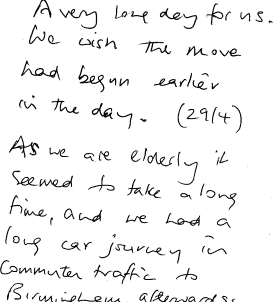 A very long day for us.
We wish the move
had begun earlier
in the day. (29/4)
As we are elderly it
seemed to take a long
time, and we had a
long car journey in
commuter traffic to
Birmingham afterwards.